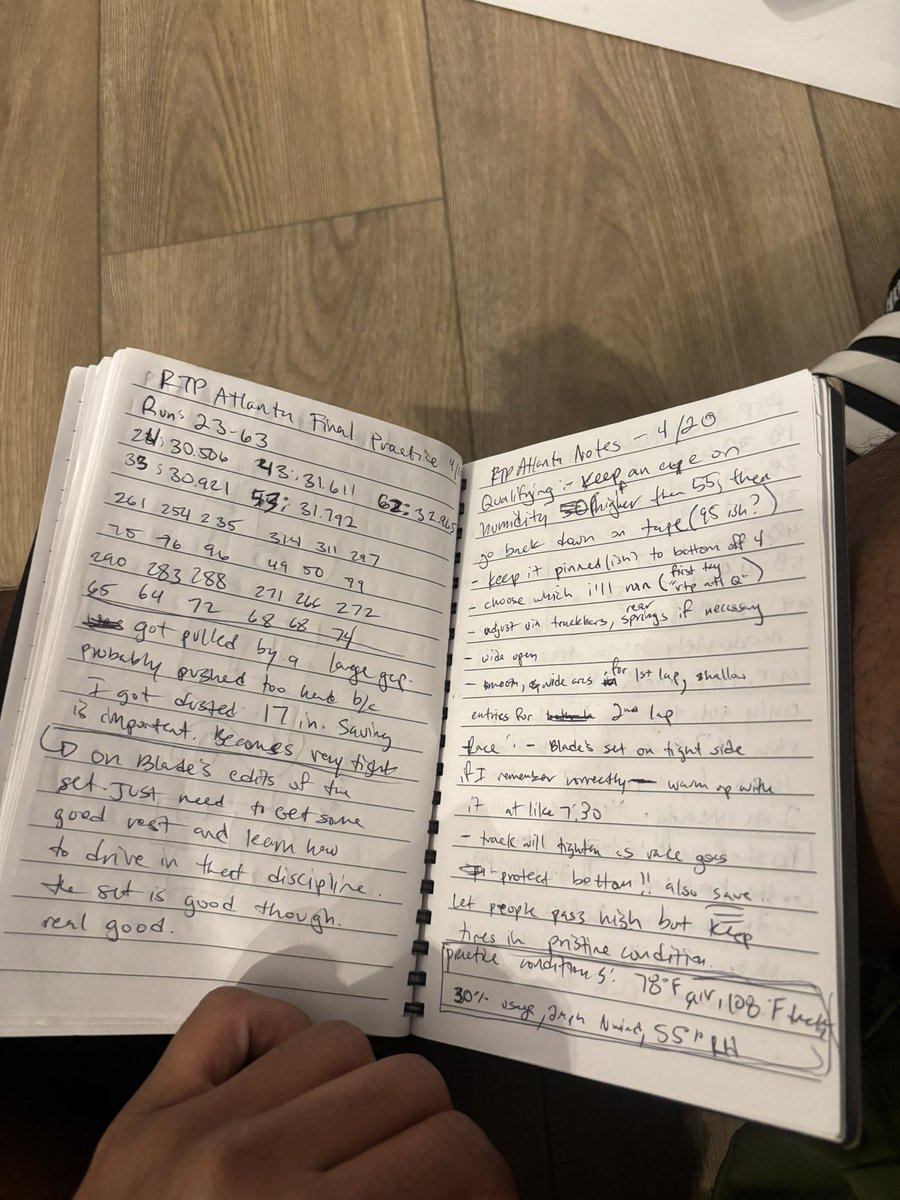 RTP Atlanta Final Practice
Run: 23-63
24: 30.506 43: 31.611 62: 32.965
33: 30.921 53: 31.792
261 254 235 314 311 297
75 76 96 49 50 79
290 283 288 271 266 272
65 64 72 68 68 74
got pulled by a large gap.
probably pushed too hard b/c
I got dusted. 17 in. Saving
is important. Becomes very tight
on Blade's edits of the
set. Just need to get some
good rest and learn how
to drive in that discipline.
the set is good though.
real good.
RTP Atlanta Notes - 4/20
Qualifying: - Keep an eye on
humidity if higher than 55, then
go back down on tape (95 ish?)
- keep it pinned(ish) to bottom off 4.
- choose which i'll run (first try "rtp atl Q")
- adjust via trackbars, rear springs if necessary
- wide open
- smooth, wide arcs for 1st lap, shallow
entries for 2nd lap
Race: - Blade's set on tight side
if I remember correctly - warm up with
it at like 7:30
- track will tighten as race goes
- protect bottom!! also save
Let people pass high but keep
tires in pristine condition.
practice conditions: 78°F air, 108°F track,
30% usage, 2mph N wind, 55% RH